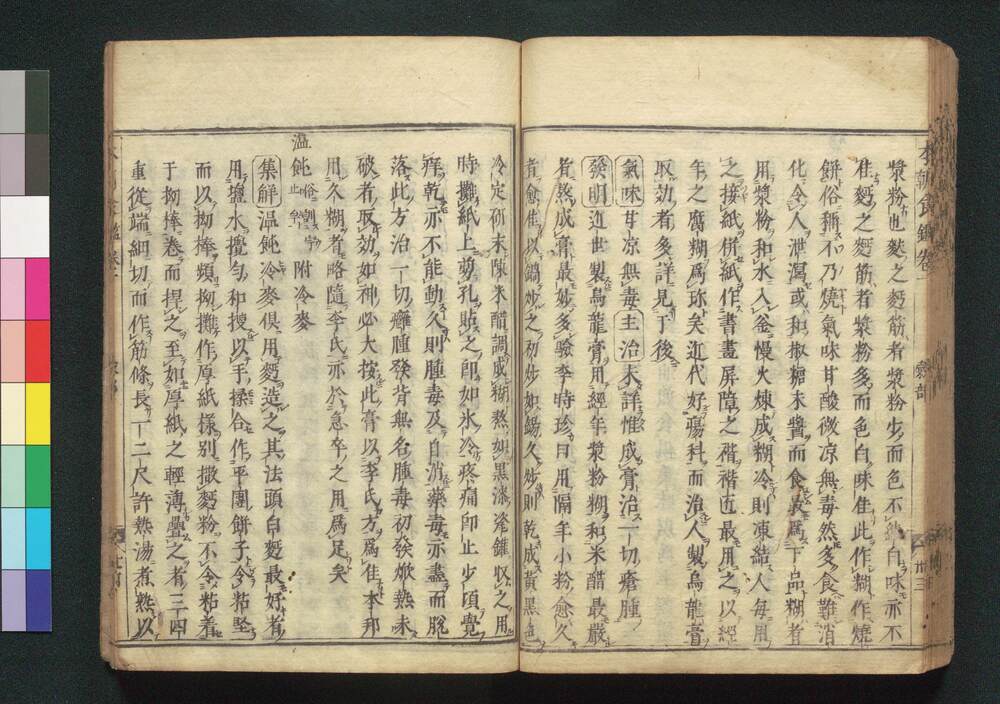 漿粉也麩之麪筋者漿粉少而色不純白味亦不
佳麪之麪筋者漿粉多而色白味佳此作糊作燒
餅俗稱不乃燒氣味甘酸微凉無毒然多食難消
化令人泄瀉或和椒糖未醬而食最爲下品糊者
用漿粉和水入釜慢火煉成糊冷則凍結人毎用
之接紙併紙作書畫屏障之褙褙匠最用之以經
年之腐糊爲珍矣近代好瘍科而治人製烏龍膏
取効者多詳見于後
氣味甘凉無毒主治未詳惟成膏治一切瘡腫
發明近世製烏龍膏用經年漿粉糊和米醋最嚴
者熬成膏最妙多驗李時珍曰用隔年小粉愈久
者愈佳以鍋炒之初炒如餳久炒則乾成黃黑色
冷定研末陳米醋調成糊熬如黑漆瓷罐收之用
時攤紙上剪孔貼之卽如氷冷疼痛卽止少頃覺
痒乾亦不能動久則腫毒及自消藥毒亦盡而脫
落此方治一切癰腫發背無名腫毒初發焮熱未
破者取効如神必大按此膏以李氏方爲佳本邦
用久糊者略隨李氏示於急卒之用爲足矣
温飩 附冷麥
集解温飩冷麥俱用麪造之其法頭白麪最好者
用鹽水攪勻和搜以手揉合作平團餅子令粘堅
而以拗棒頻拗攤作厚紙樣別撒麪粉不令粘着
于拗棒卷而捍之至如厚紙之輕薄疊之者三四
重從端細切而作筋條長一二尺許熱湯煮熟以